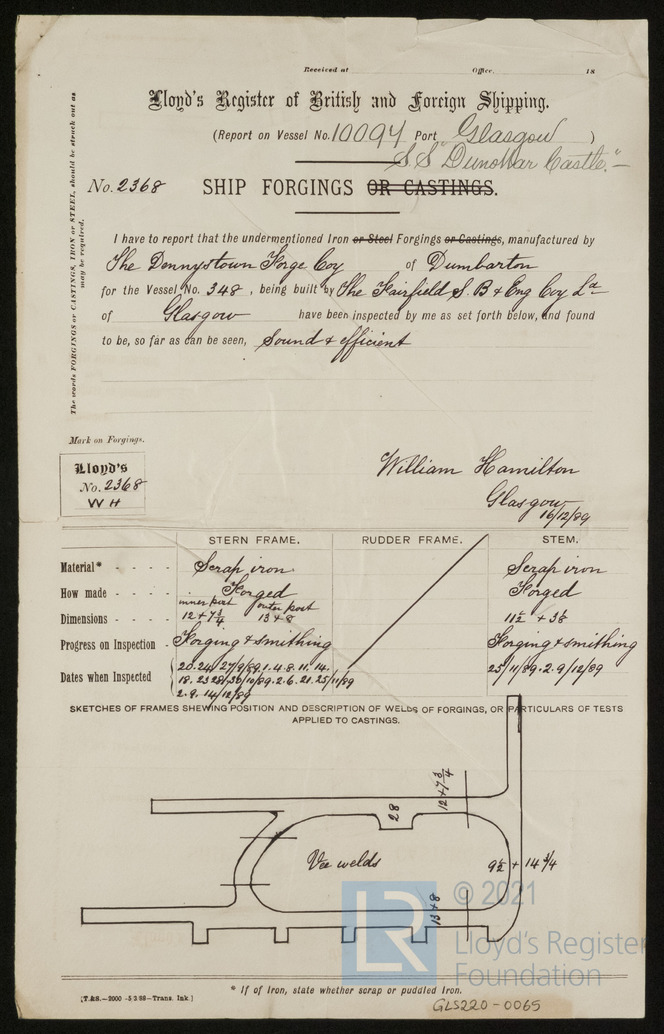 Received at Office, 18
Lloyd's Register of British and Foreign Shipping.
(Report on Vessel No. 10094 Port "Glasgow )
SS "Dunottar Castle"
No. 2368 SHIP FORGINGS OR CASTINGS.
The words FORGINGS or CASTINGS, IRON or STEEL, should be struck out as may be required.
I have to report that the undermentioned Iron or Steel Forgings or Castings, manufactured by
The Dennystown Forge Coy of Dumbarton
for the Vessel No. 348, being built by The Fairfield S. B & Eng Coy Ld
of Glasgow have been inspected by me as set forth below, and found
to be, so far as can be seen, Sound & efficient
Mark on Forgings.
Lloyd's
No. 2368
W H
William Hamilton
Glasgow
16/12/89
STERN FRAME. RUDDER FRAME. STEM.
Material* - - - - Scrap iron Scrap iron
How made - - - - Forged Forged
inner post outer post
Dimensions - - - - 12 + 7 3/4 13 + 8 11 1/2 + 3 1/8
Progress on Inspection - Forging & smithing Forging & smithing
Dates when Inspected 20. 24. 27/9/89. 1. 4. 8. 11. 14. 25/11/89. 2. 9/12/89
18. 23 28/30/10/89. 2. 6. 21. 25/11/89
2. 9. 14/12/89
SKETCHES OF FRAMES SHEWING POSITION AND DESCRIPTION OF WELDS OF FORGINGS, OR PARTICULARS OF TESTS
APPLIED TO CASTINGS.
12 + 7 3/4
28
Vee welds
9 1/2 + 14 3/4
13 + 8
© 2021
LR
Lloyd's Register
Foundation
* If of Iron, state whether scrap or puddled Iron.
[T.&S.—2000 -5/3/86—Trans. Ink.]
GLS220-0065